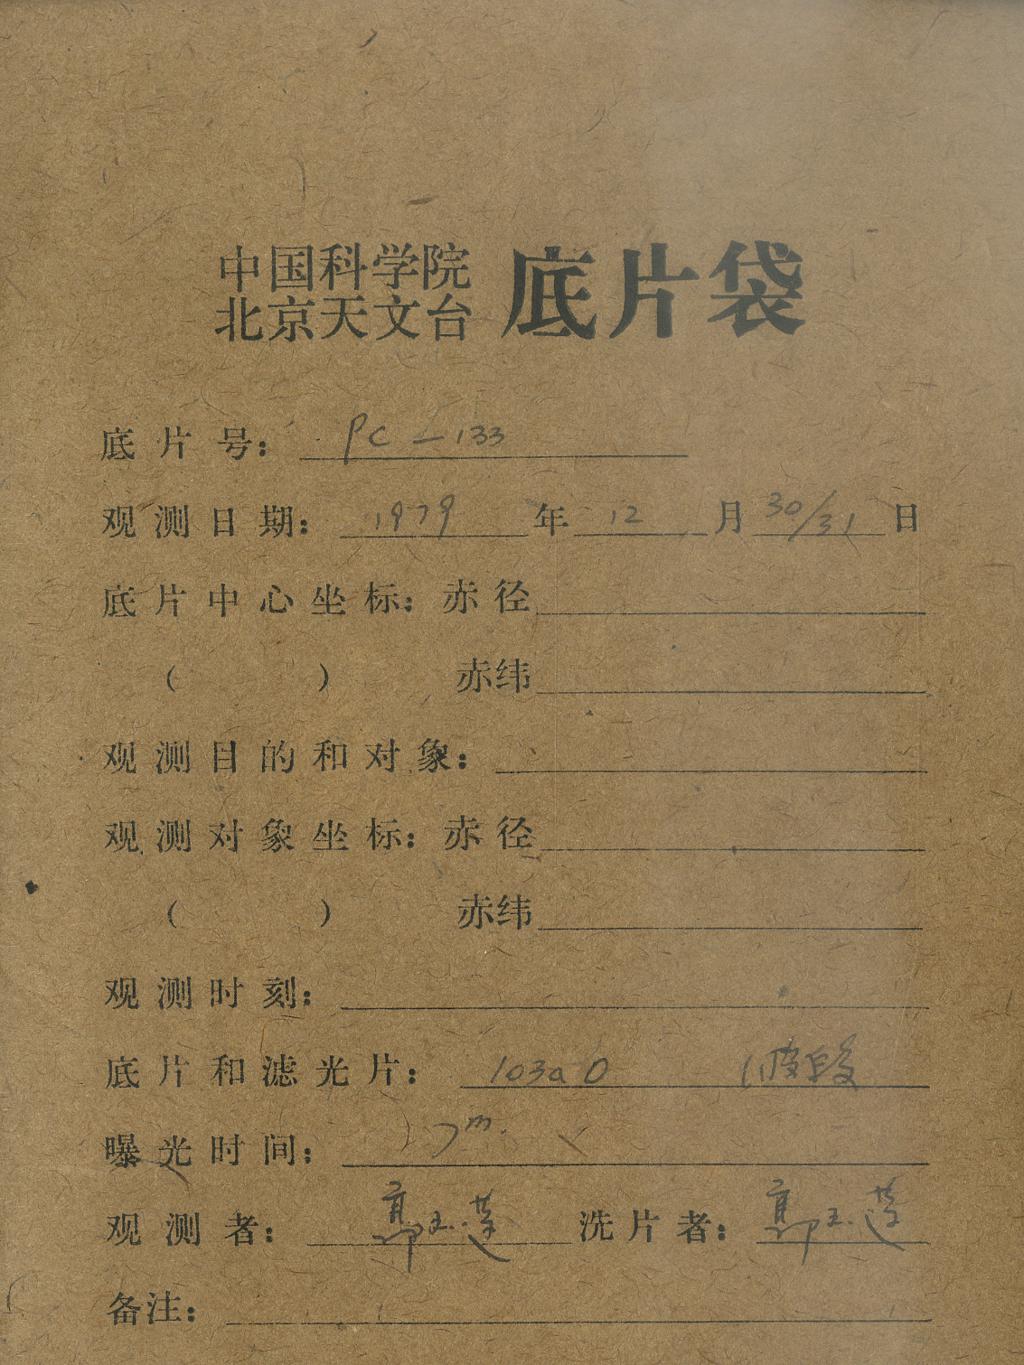 中国科学院
北京天文台 底片袋
底片号: PC-133
观测日期: 1979年12月30/31日
底片中心坐标: 赤径
( ) 赤纬
观测目的和对象:
观测对象坐标: 赤径
( ) 赤纬
观测时刻:
底片和滤光片: 103aO 波段
曝光时间:
观测者: 洗片者:
备注: